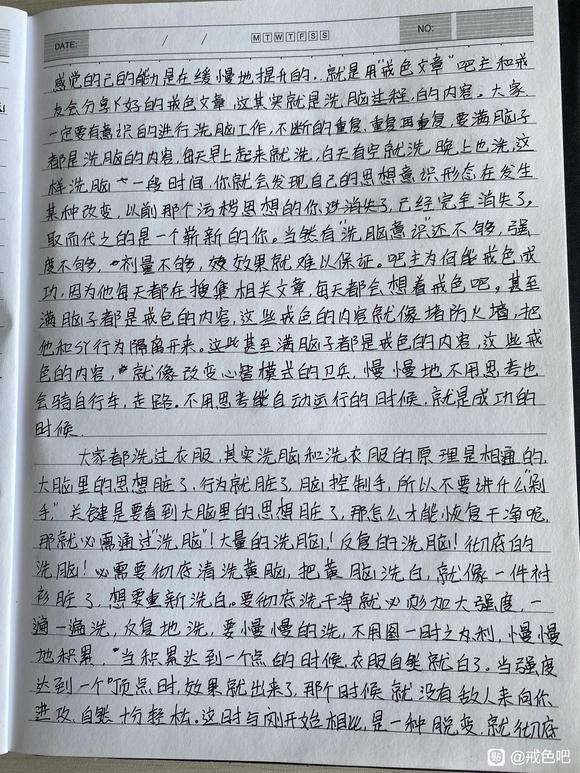 DATE: / / M T W T F S S NO:
感觉的己的能力是在缓慢地提升的，就是用“戒色文章”吧主和戒
友会分享下好的戒色文章，这其实就是洗脑过程，的内容。大家
一定要有意识的进行洗脑工作，不断的重复，重复再重复，要满脑子
都是洗脑的内容，每天早上起来就洗，白天有空就洗，晚上也洗，这
样洗脑一段时间，你就会发现自己的思想意识形态在发生
某种改变，以前那个污秽思想的你已经完全消失了，
取而代之的是一个崭新的你。当然有“洗脑意识”还不够，强
度不够，剂量不够，效果就难以保证。吧主为何能戒色成
功，因为他每天都在搜集相关文章，每天都会想着戒色吧。甚至
满脑子都是戒色的内容，这些戒色的内容就像堵防火墙，把
他和SY行为隔离开来。这些甚至满脑子都是戒色的内容，这些戒
色的内容，就像改变心智模式的卫兵，慢慢地不用思考也
会骑自行车，走路。不用思考能自动运行的时候，就是成功的
时候。
大家都洗过衣服，其实洗脑和洗衣服的原理是相通的，
大脑里的思想脏了，行为就脏了，脑控制手，所以不要讲什么“剁
手”关键是要看到大脑里的思想脏了，那怎么才能恢复干净呢，
那就必需通过“洗脑”！大量的洗脑！反复的洗脑！彻底的
洗脑！必需要彻底清洗黄脑，把黄脑洗白，就像一件衬
衫脏了，想要重新洗白。要彻底洗干净就必须加大强度，一
遍一遍洗，反复地洗，要慢慢的洗，不用图一时之为利，慢慢
地积累，当积累达到一个点的时候，衣服自然就白了。当强度
达到一个顶点时，效果就出来了，那个时候就没有敌人来向你
进攻，自然十分轻松。这时与刚开始相比，是一种脱变，就彻底
贴 @戒色吧